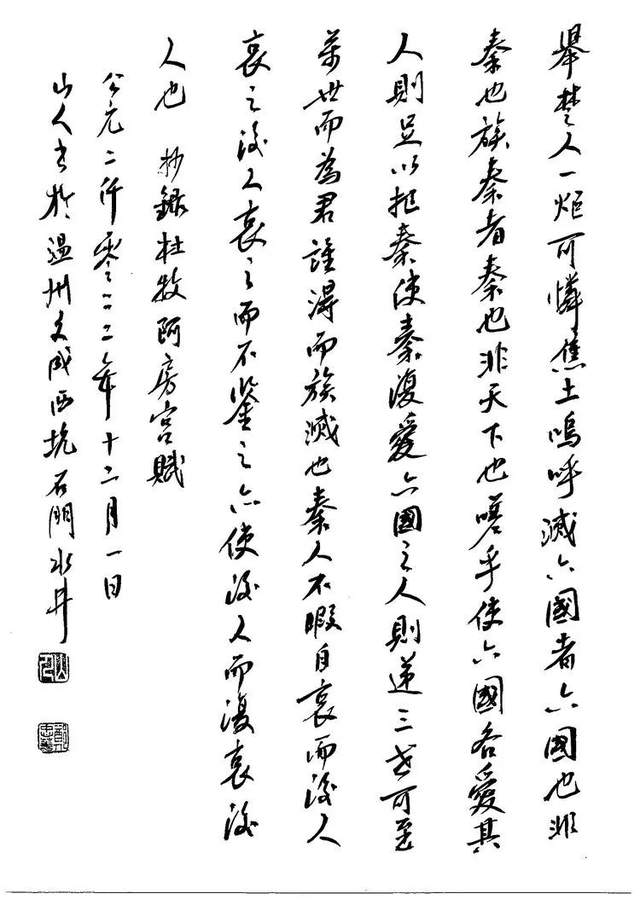 舉楚人一炬可憐焦土嗚呼滅六國者六國也非
秦也族秦者秦也非天下也嗟乎使六國各愛其
人則足以拒秦使秦復愛六國之人則遞三世可至
萬世而為君誰得而族滅也秦人不暇自哀而後人
哀之後人哀之而不鑒之亦使後人而復哀後
人也 抄錄杜牧阿房宮賦
公元二仟零二二年十二月一日
山人書於溫州文成西坑石門水井